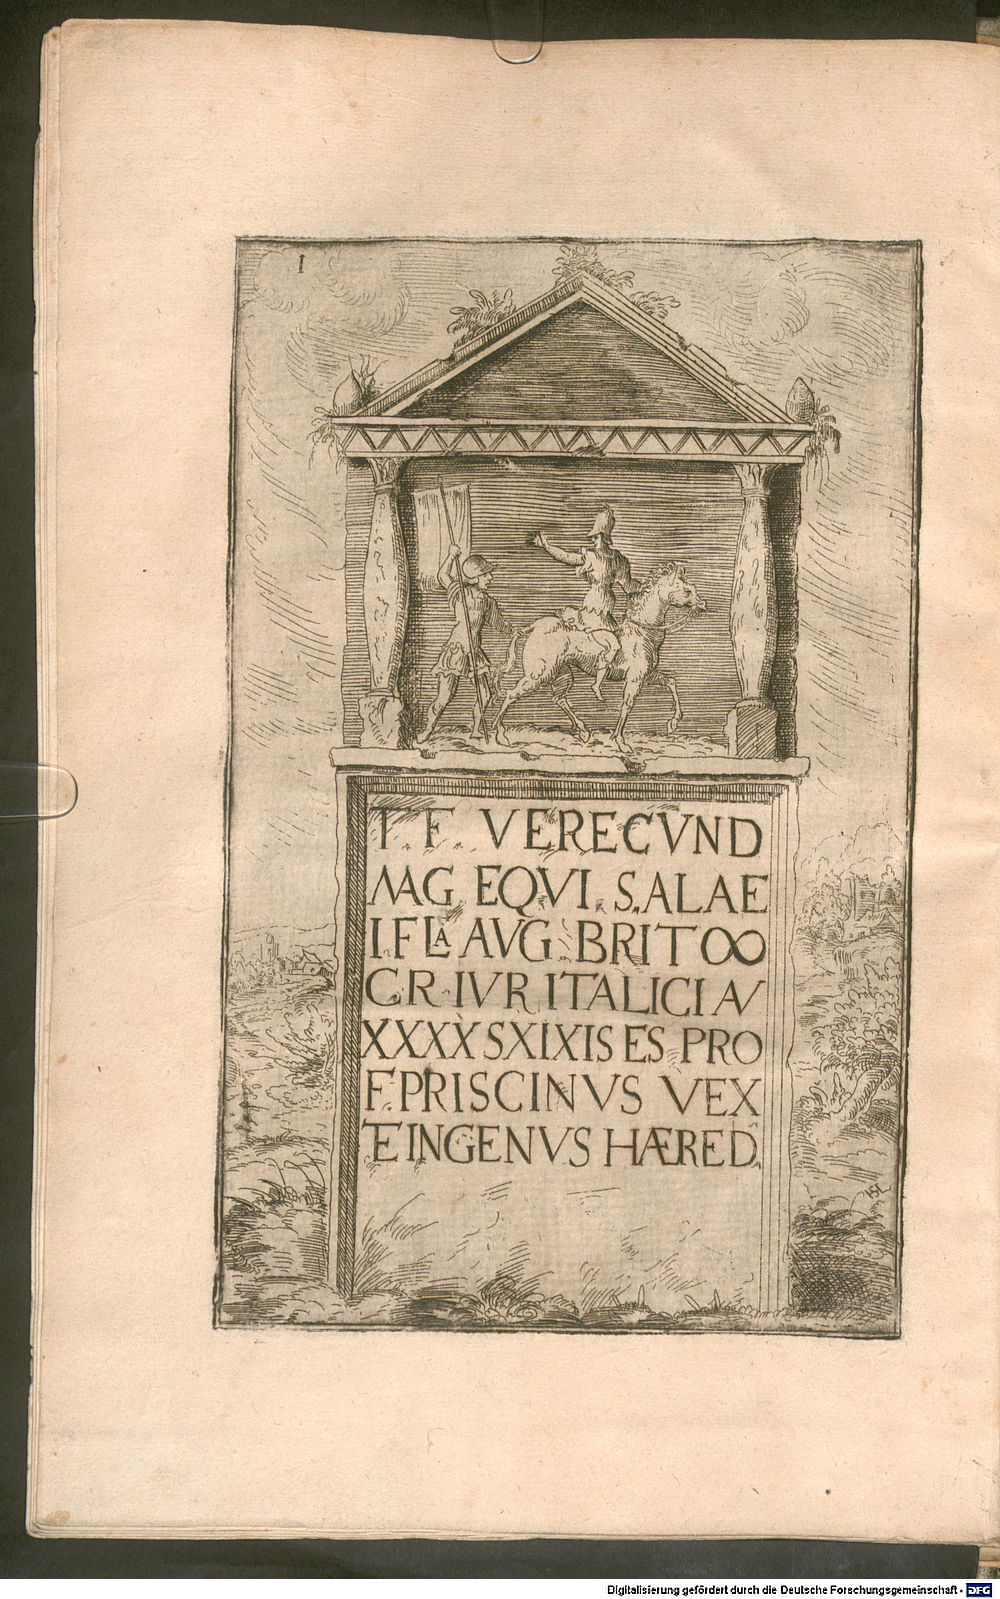 1
T. F. VERECVND
MAG EQVI. S. ALAE
I. FLA AVG BRIT ∞
C R IVR ITALICI AV
XXXX SXIXIS ES PRO
F. PRISCINVS VEX
TE INGENVS HÆRED.
HSL
Digitalisierung gefördert durch die Deutsche Forschungsgemeinschaft - DFG